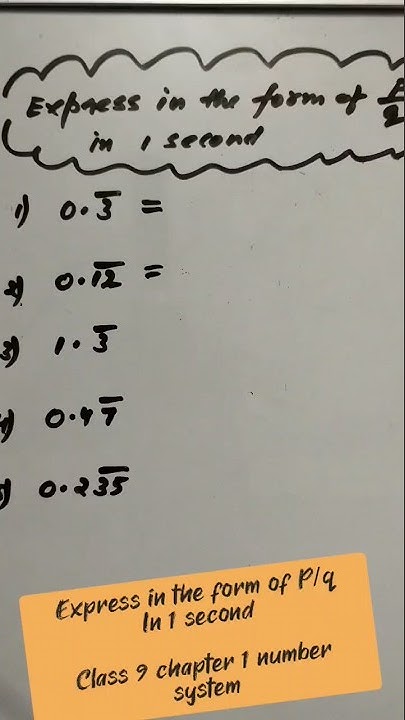 Express in the form of P/q
in 1 second
1) 0.3̅ =
2) 0.1̅2̅ =
3) 1.3̅
4) 0.47̅
5) 0.23̅5̅
Express in the form of P/q
In 1 second
Class 9 chapter 1 number
system